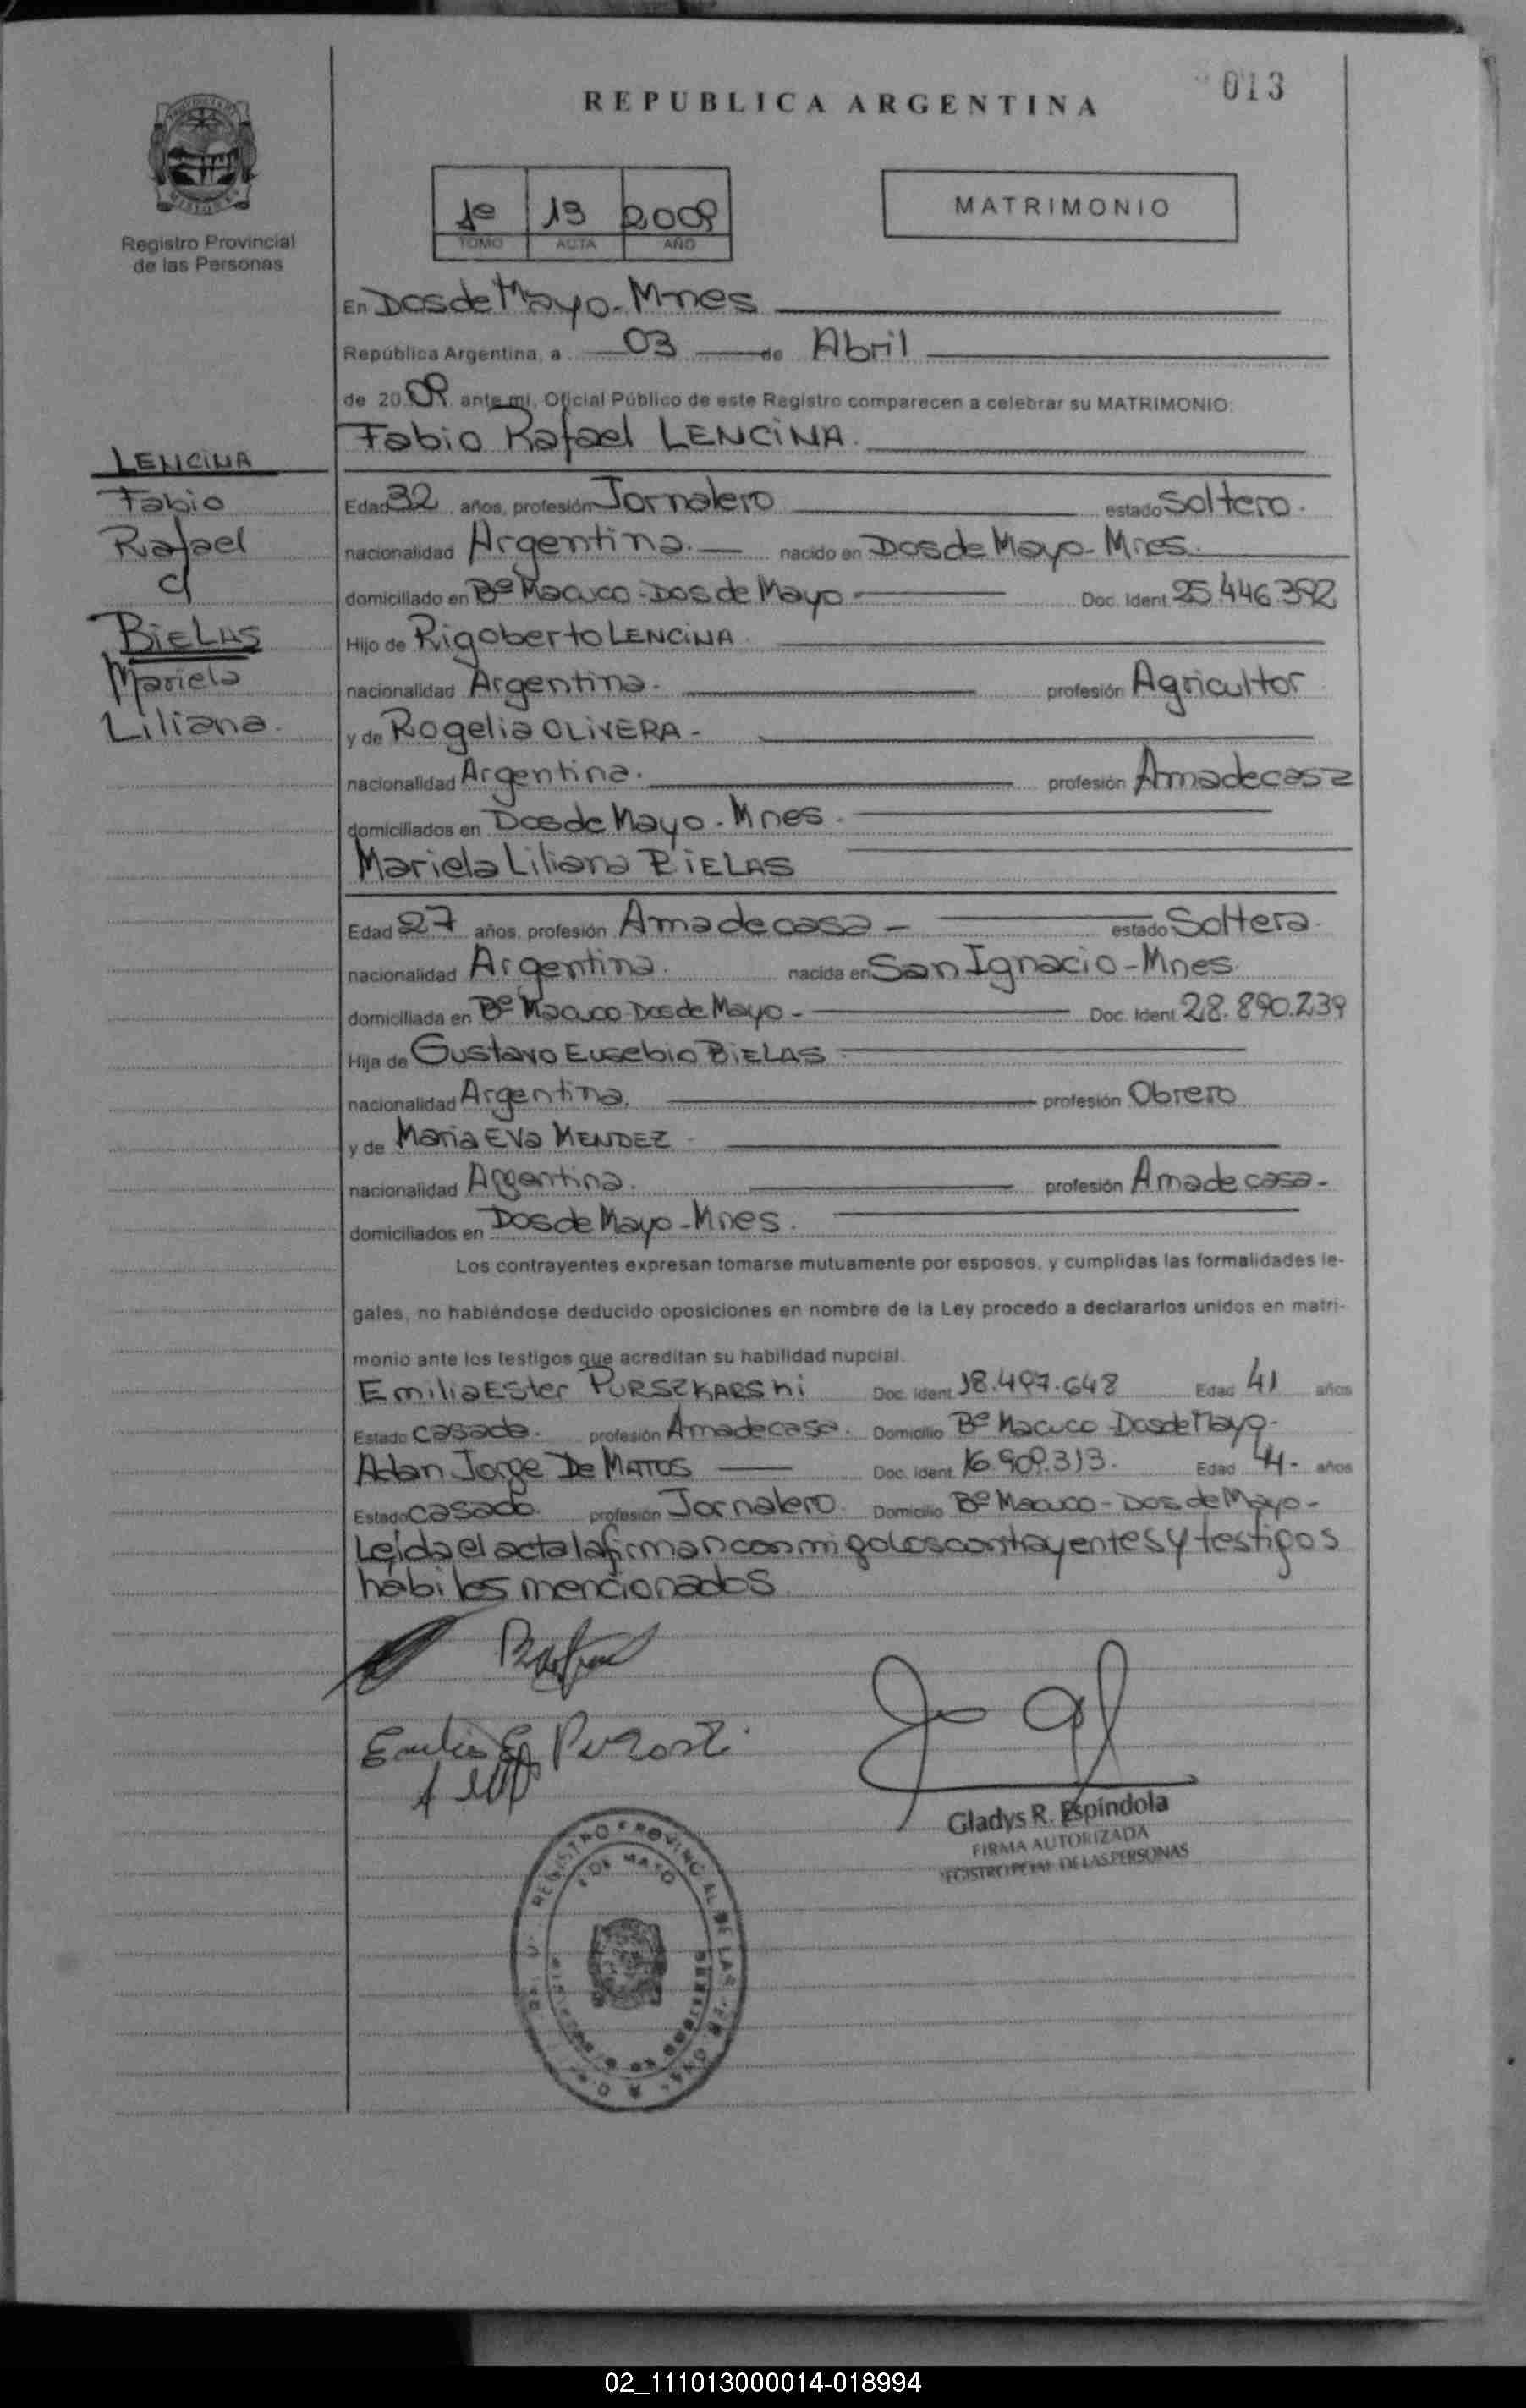 013
REPUBLICA ARGENTINA
Registro Provincial
de las Personas
1º 13 2009
TOMO ACTA AÑO
MATRIMONIO
En Dos de Mayo - Mnes
República Argentina, a 03 de Abril
de 2009 ante mi, Oficial Público de este Registro comparecen a celebrar su MATRIMONIO:
Fabio Rafael LENCINA.
LENCINA
Fabio
Rafael
c/
BIELAS
Mariela
Liliana.
Edad 32 años, profesión Jornalero estado Soltero.
nacionalidad Argentina. nacido en Dos de Mayo - Mnes.
domiciliado en Bº Macuco - Dos de Mayo - Doc. Ident. 25.446.392
Hijo de Rigoberto LENCINA.
nacionalidad Argentina. profesión Agricultor
y de Rogelia OLIVERA -
nacionalidad Argentina. profesión Ama de casa
domiciliados en Dos de Mayo - Mnes.
Mariela Liliana BIELAS
Edad 27 años, profesión Ama de casa - estado Soltera.
nacionalidad Argentina. nacida en San Ignacio - Mnes.
domiciliada en Bº Macuco - Dos de Mayo - Doc. Ident. 28.890.239
Hija de Gustavo Eusebio BIELAS.
nacionalidad Argentina. profesión Obrero
y de Maria Eva MENDEZ -
nacionalidad Argentina. profesión Ama de casa -
domiciliados en Dos de Mayo - Mnes.
Los contrayentes expresan tomarse mutuamente por esposos, y cumplidas las formalidades le-
gales, no habiéndose deducido oposiciones en nombre de la Ley procedo a declararlos unidos en matri-
monio ante los testigos que acreditan su habilidad nupcial.
Emilia Ester PURSZKARSKI Doc. Ident. 18.497.648 Edad 41 años
Estado Casada. profesión Ama de casa. Domicilio Bº Macuco - Dos de Mayo -
Adan Jorge De MATTOS Doc. Ident. 16.909.313. Edad 44 - años
Estado Casado. profesión Jornalero. Domicilio Bº Macuco - Dos de Mayo -
Leida el acta la firman conmigo los contrayentes y testigos
habiles mencionados.
Gladys R. Espíndola
FIRMA AUTORIZADA
REGISTRO PCIAL. DE LAS PERSONAS
REGISTRO PROVINCIAL DE LAS PERSONAS
DE MAYO
02_111013000014-018994